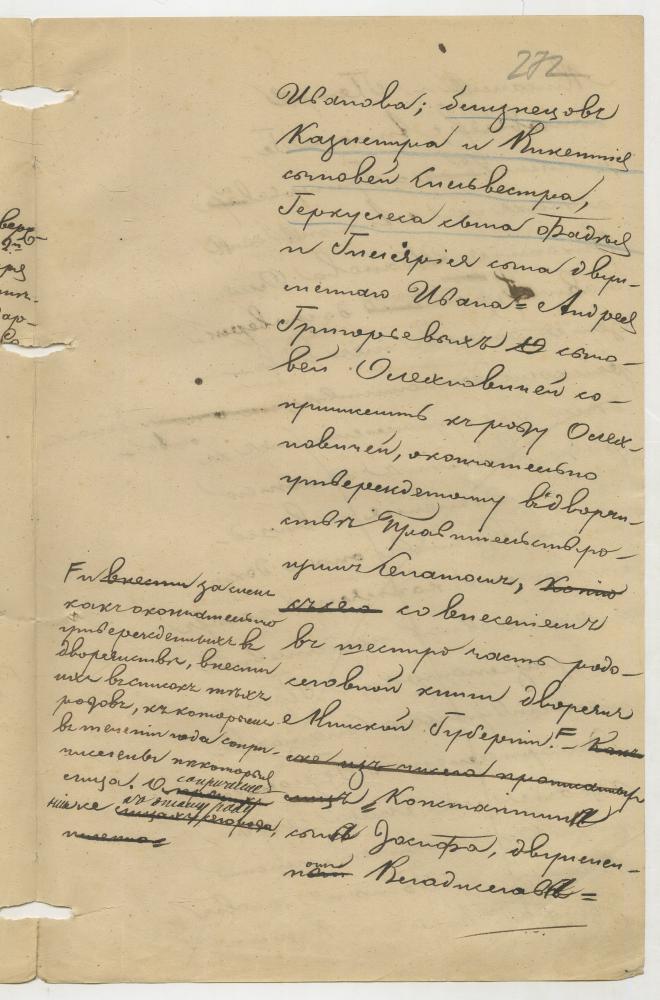 272
Иванова; близнецовъ
Казимира и Викентія
сыновей Сильвестра,
Геркулеса сына Фадѣя
и Гиляріяра сына двуи-
меннаго Ивана=Андрея
Григорьевыхъ сыно-
вей Олехновичей со-
причислить къ роду Олех-
новичей, окончательно
утвержденному въ дворян-
ствѣ Правительствую-
щимъ Сенатомъ, Копію
съ сего со внесеніемъ
въ шестую часть родо-
словной книги дворянъ
Минской Губерніи. F Какъ
же изъ числа прописанныхъ
лицъ Константина
сына Іосифа, двуимен-
наго Владислава=
F и внести записи
какъ окончательно
утвержденныхъ въ
дворянствѣ, внести
ихъ въ списокъ тѣхъ
родовъ, къ которымъ
въ теченіи года сопри-
числены нѣкоторыя
лица. О сопричисле-
ніи же къ этому роду